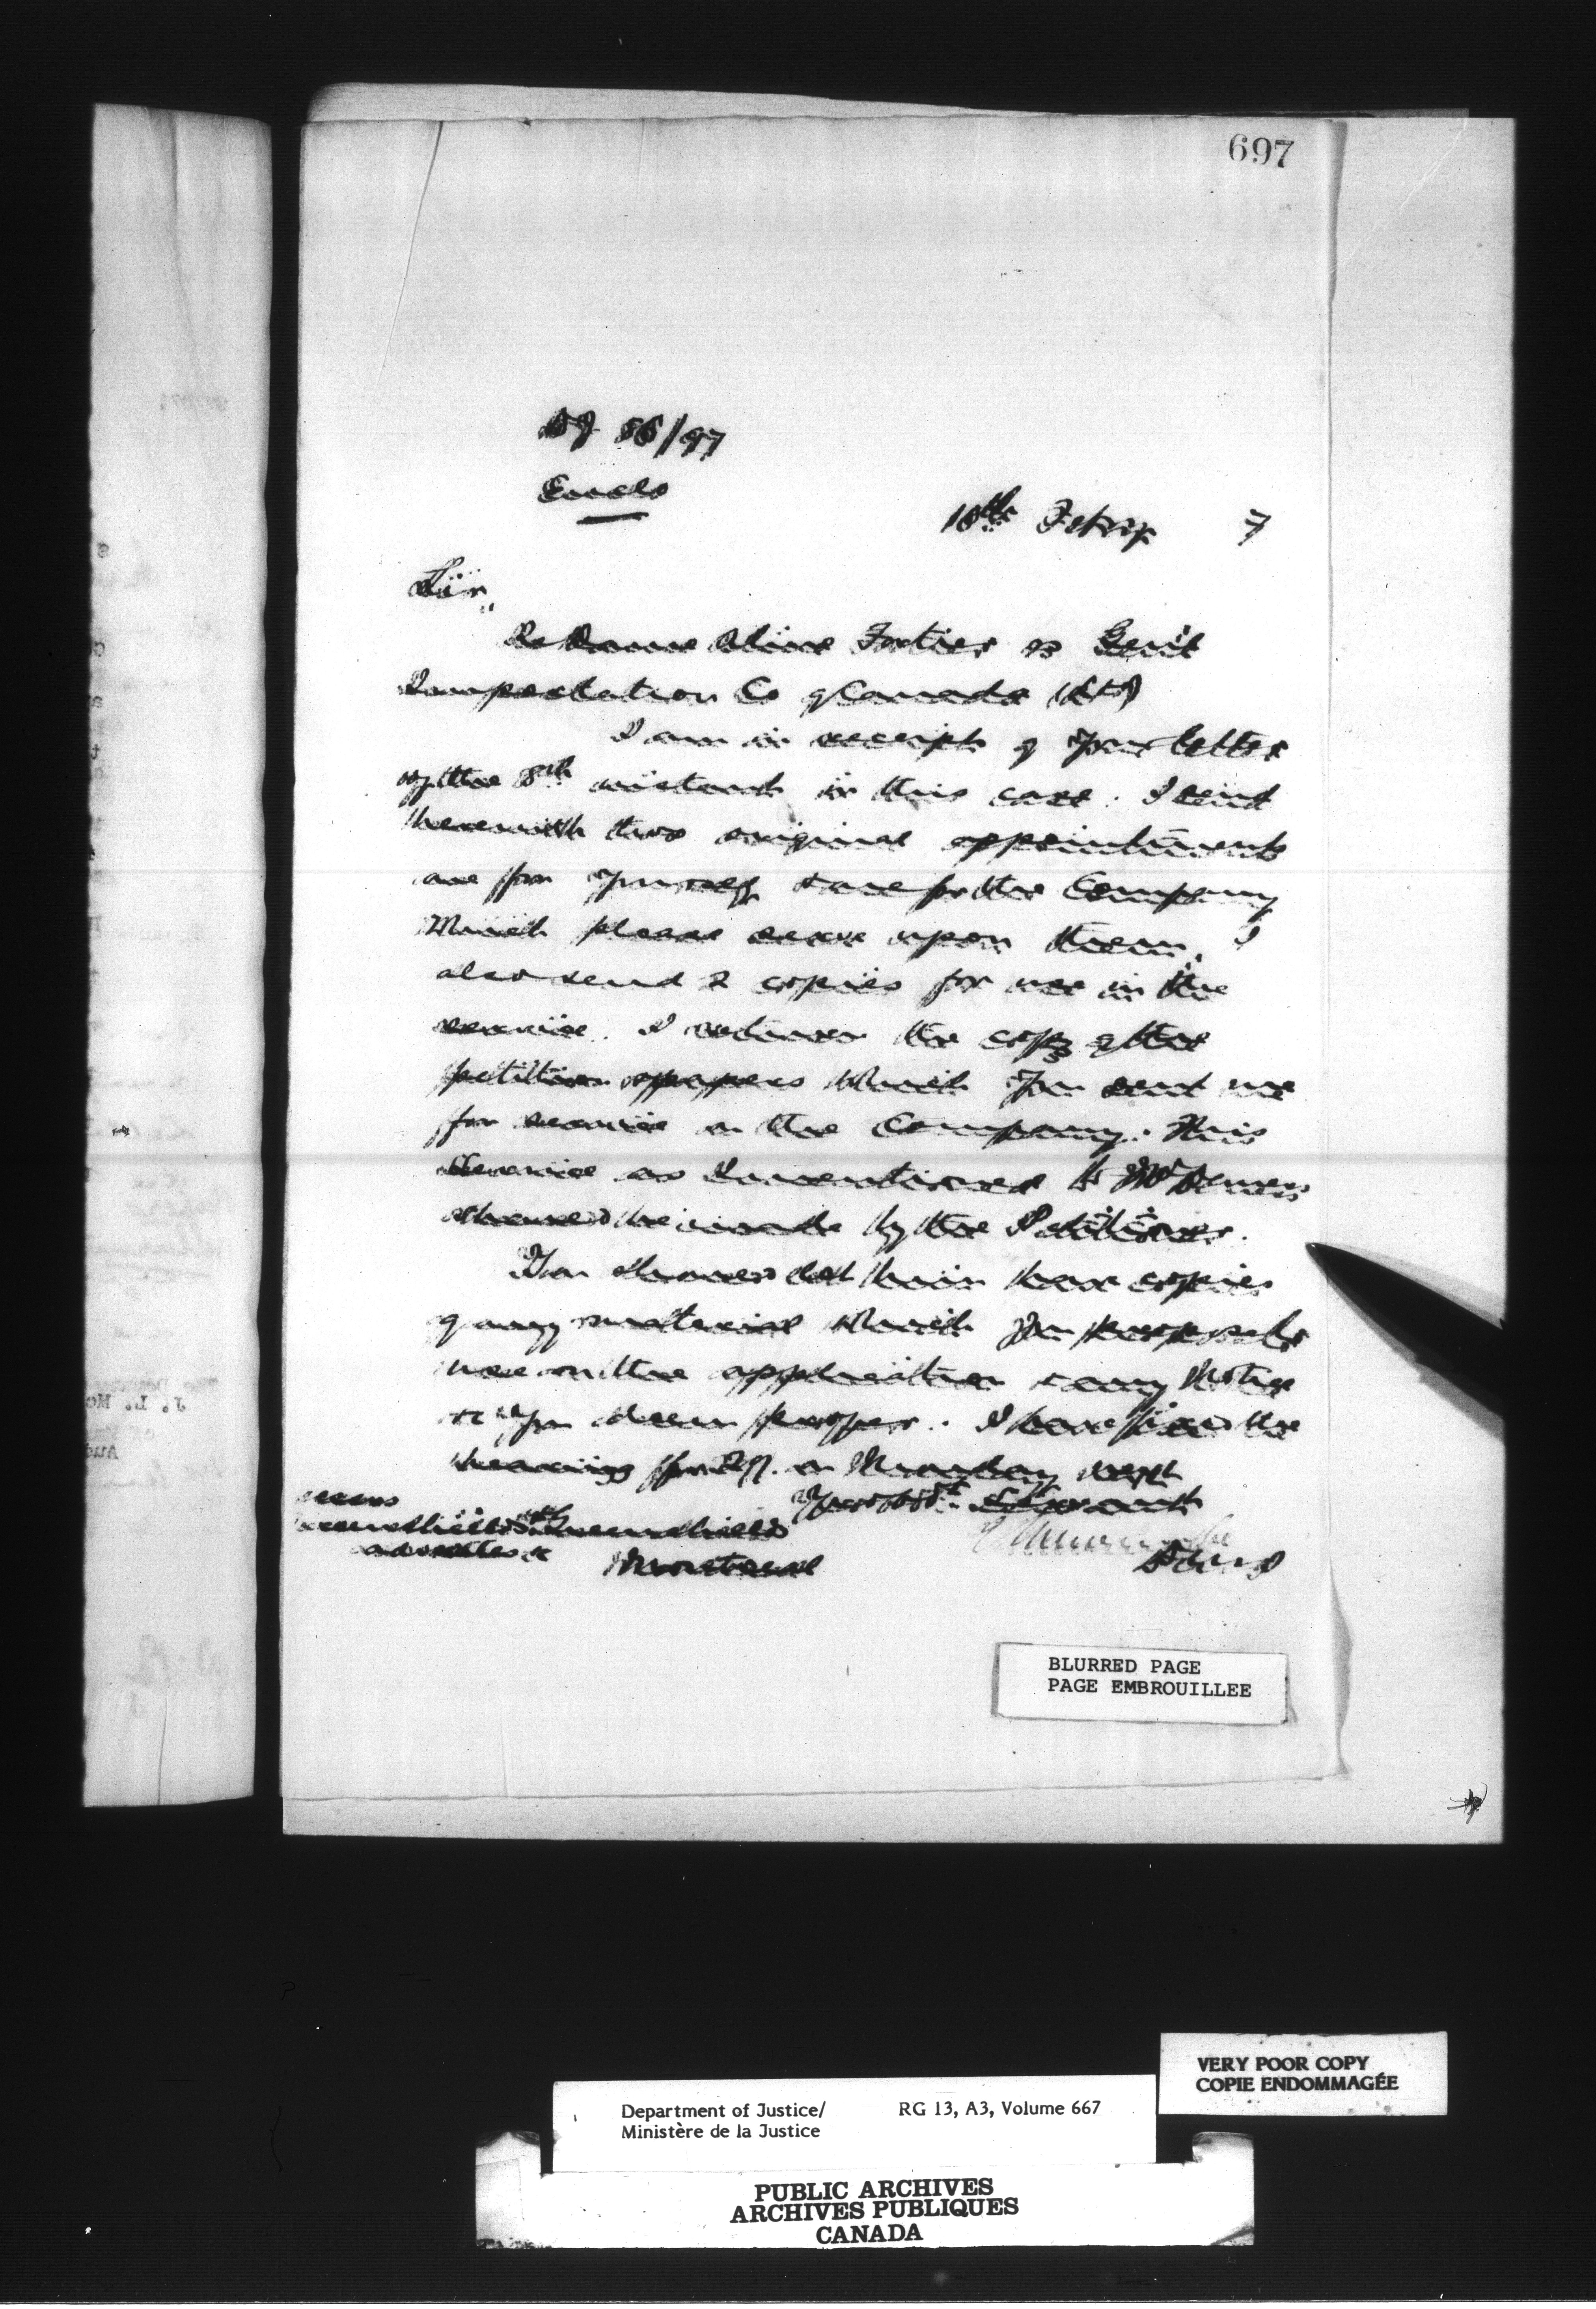 697
56/97
Encls
10th Febry 7
Sir,
Re Dame Aline Fortier vs Gen'l
Importation Co of Canada (Ltd)
I am in receipt of your letter
of the 8th instant in this case. I send
herewith two original appointments
one for yourself & one for the Company
which please serve upon them. I
also send 2 copies for use in the
service. I return the copy of the
petition & papers which you sent me
for service on the Company. This
service as I mentioned to Mr
should be made by the Petitioner.
You should let him have copies
of any material which you propose to
use on the application & any Notice
&c you deem proper. I have fixed the
hearing for on Monday next
Your obdt Servant
Messrs
Greenshields & Greenshields
Advocates &c Montreal
BLURRED PAGE
PAGE EMBROUILLEE
VERY POOR COPY
COPIE ENDOMMAGÉE
Department of Justice/ RG 13, A3, Volume 667
Ministère de la Justice
PUBLIC ARCHIVES
ARCHIVES PUBLIQUES
CANADA